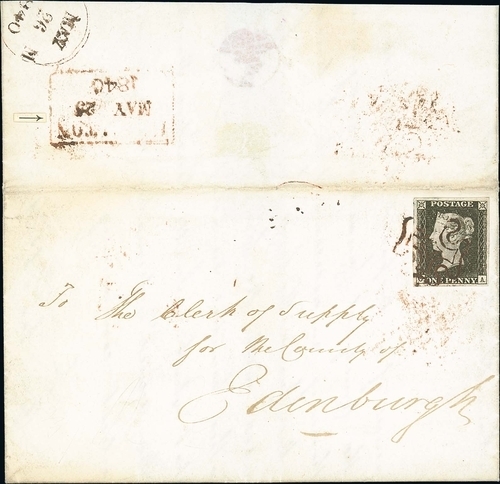 MAY
26
1840
MAY 25
POSTAGE
ONE PENNY A
To The Clerk of Supply
for the County of
Edinburgh